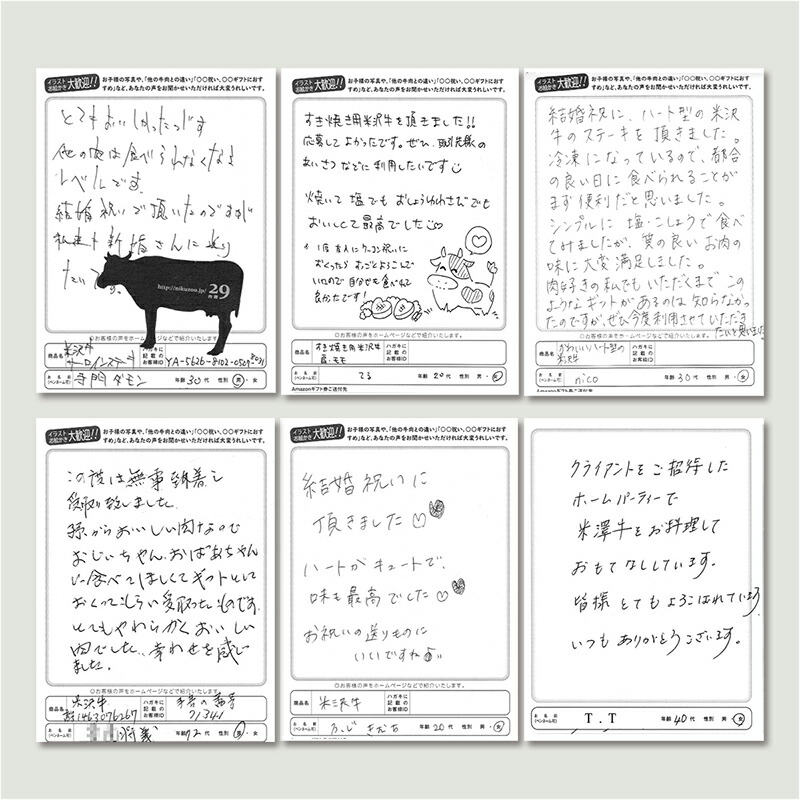 イラスト
お絵かき 大歓迎!! お子様の写真や、「他の牛肉との違い」「〇〇祝い、〇〇ギフトにおす
すめ」など、あなたの声をお聞かせいただければ大変うれしいです。
とてもおいしかったです
他の肉は食べられなくなる
レベルです。
結婚祝いで頂いたのですが
私達も新婚さんに送り
たいです。
http://nikuzoo.jp/ 29
◎お客様の声をホームページなどで紹介いたします。
商品名 米沢牛
サーロインステーキ
ハガキに
記載の
お客様ID
YA-5626-8102-0529-
お名前
(ペンネーム可)
寺門ダモン 年齢 30代 性別 男・女
イラスト
お絵かき 大歓迎!! お子様の写真や、「他の牛肉との違い」「〇〇祝い、〇〇ギフトにおす
すめ」など、あなたの声をお聞かせいただければ大変うれしいです。
すき焼き用米沢牛を頂きました!!
応募してよかったです。ぜひ、取引先様の
あいさつなどに利用したいです
焼いて塩でもおしょうゆわさびでも
おいしくて最高でした
1度友人にケッコン祝いに
おくったら すっごとよろこんで
いたので 自分も食べれて
良かったです!
◎お客様の声をホームページなどで紹介いたします。
商品名 すき焼き用米沢牛
肩・モモ
ハガキに
記載の
お客様ID
お名前
(ペンネーム可)
てる 年齢 20代 性別 男・女
Amazonギフト券ご送付先
イラスト
お絵かき 大歓迎!! お子様の写真や、「他の牛肉との違い」「〇〇祝い、〇〇ギフトにおす
すめ」など、あなたの声をお聞かせいただければ大変うれしいです。
結婚祝に、ハート型の米沢
牛のステーキを頂きました。
冷凍になっているので、都合
の良い日に食べられることが
まず便利だと思いました。
シンプルに塩・こしょうで食べ
てみましたが、質の良いお肉の
味に大変満足しました。
肉好きの私でもいただくまでこの
ようなギフトがあるのは知らなかっ
たのですが、ぜひ今度利用させていただき
たいと思いました
◎お客様の声をホームページなどで紹介いたします。
商品名 かわいいハート型の
米沢牛
ハガキに
記載の
お客様ID
お名前
(ペンネーム可)
nico 年齢 30代 性別 男・女
Amazonギフト券ご送付先
イラスト
お絵かき 大歓迎!! お子様の写真や、「他の牛肉との違い」「〇〇祝い、〇〇ギフトにおす
すめ」など、あなたの声をお聞かせいただければ大変うれしいです。
この度は無事到着し
受取り致しました。
孫からおいしい肉なので
おじいちゃん、おばあちゃん
に食べてほしくてギフトとして
おくってもらい受取ったものです。
とてもやわらかくおいしい
肉でした、幸わせを感じ
ました。
◎お客様の声をホームページなどで紹介いたします。
商品名 米沢牛
1463076267
ハガキに
記載の
お客様ID
21341
お名前
(ペンネーム可)
年齢 72代 性別 男・女
イラスト
お絵かき 大歓迎!! お子様の写真や、「他の牛肉との違い」「〇〇祝い、〇〇ギフトにおす
すめ」など、あなたの声をお聞かせいただければ大変うれしいです。
結婚祝いに
頂きました♡
ハートがキュートで、
味も最高でした♡
お祝いの送りものに
いいですね♪
◎お客様の声をホームページなどで紹介いたします。
商品名 米沢牛
ハガキに
記載の
お客様ID
お名前
(ペンネーム可)
年齢 20代 性別 男・女
クライアントをご招待した
ホームパーティーで
米澤牛をお料理して
おもてなししています。
皆様とてもよろこばれています
いつもありがとうございます。
お名前
(ペンネーム可)
T.T 年齢 40代 性別 男・女